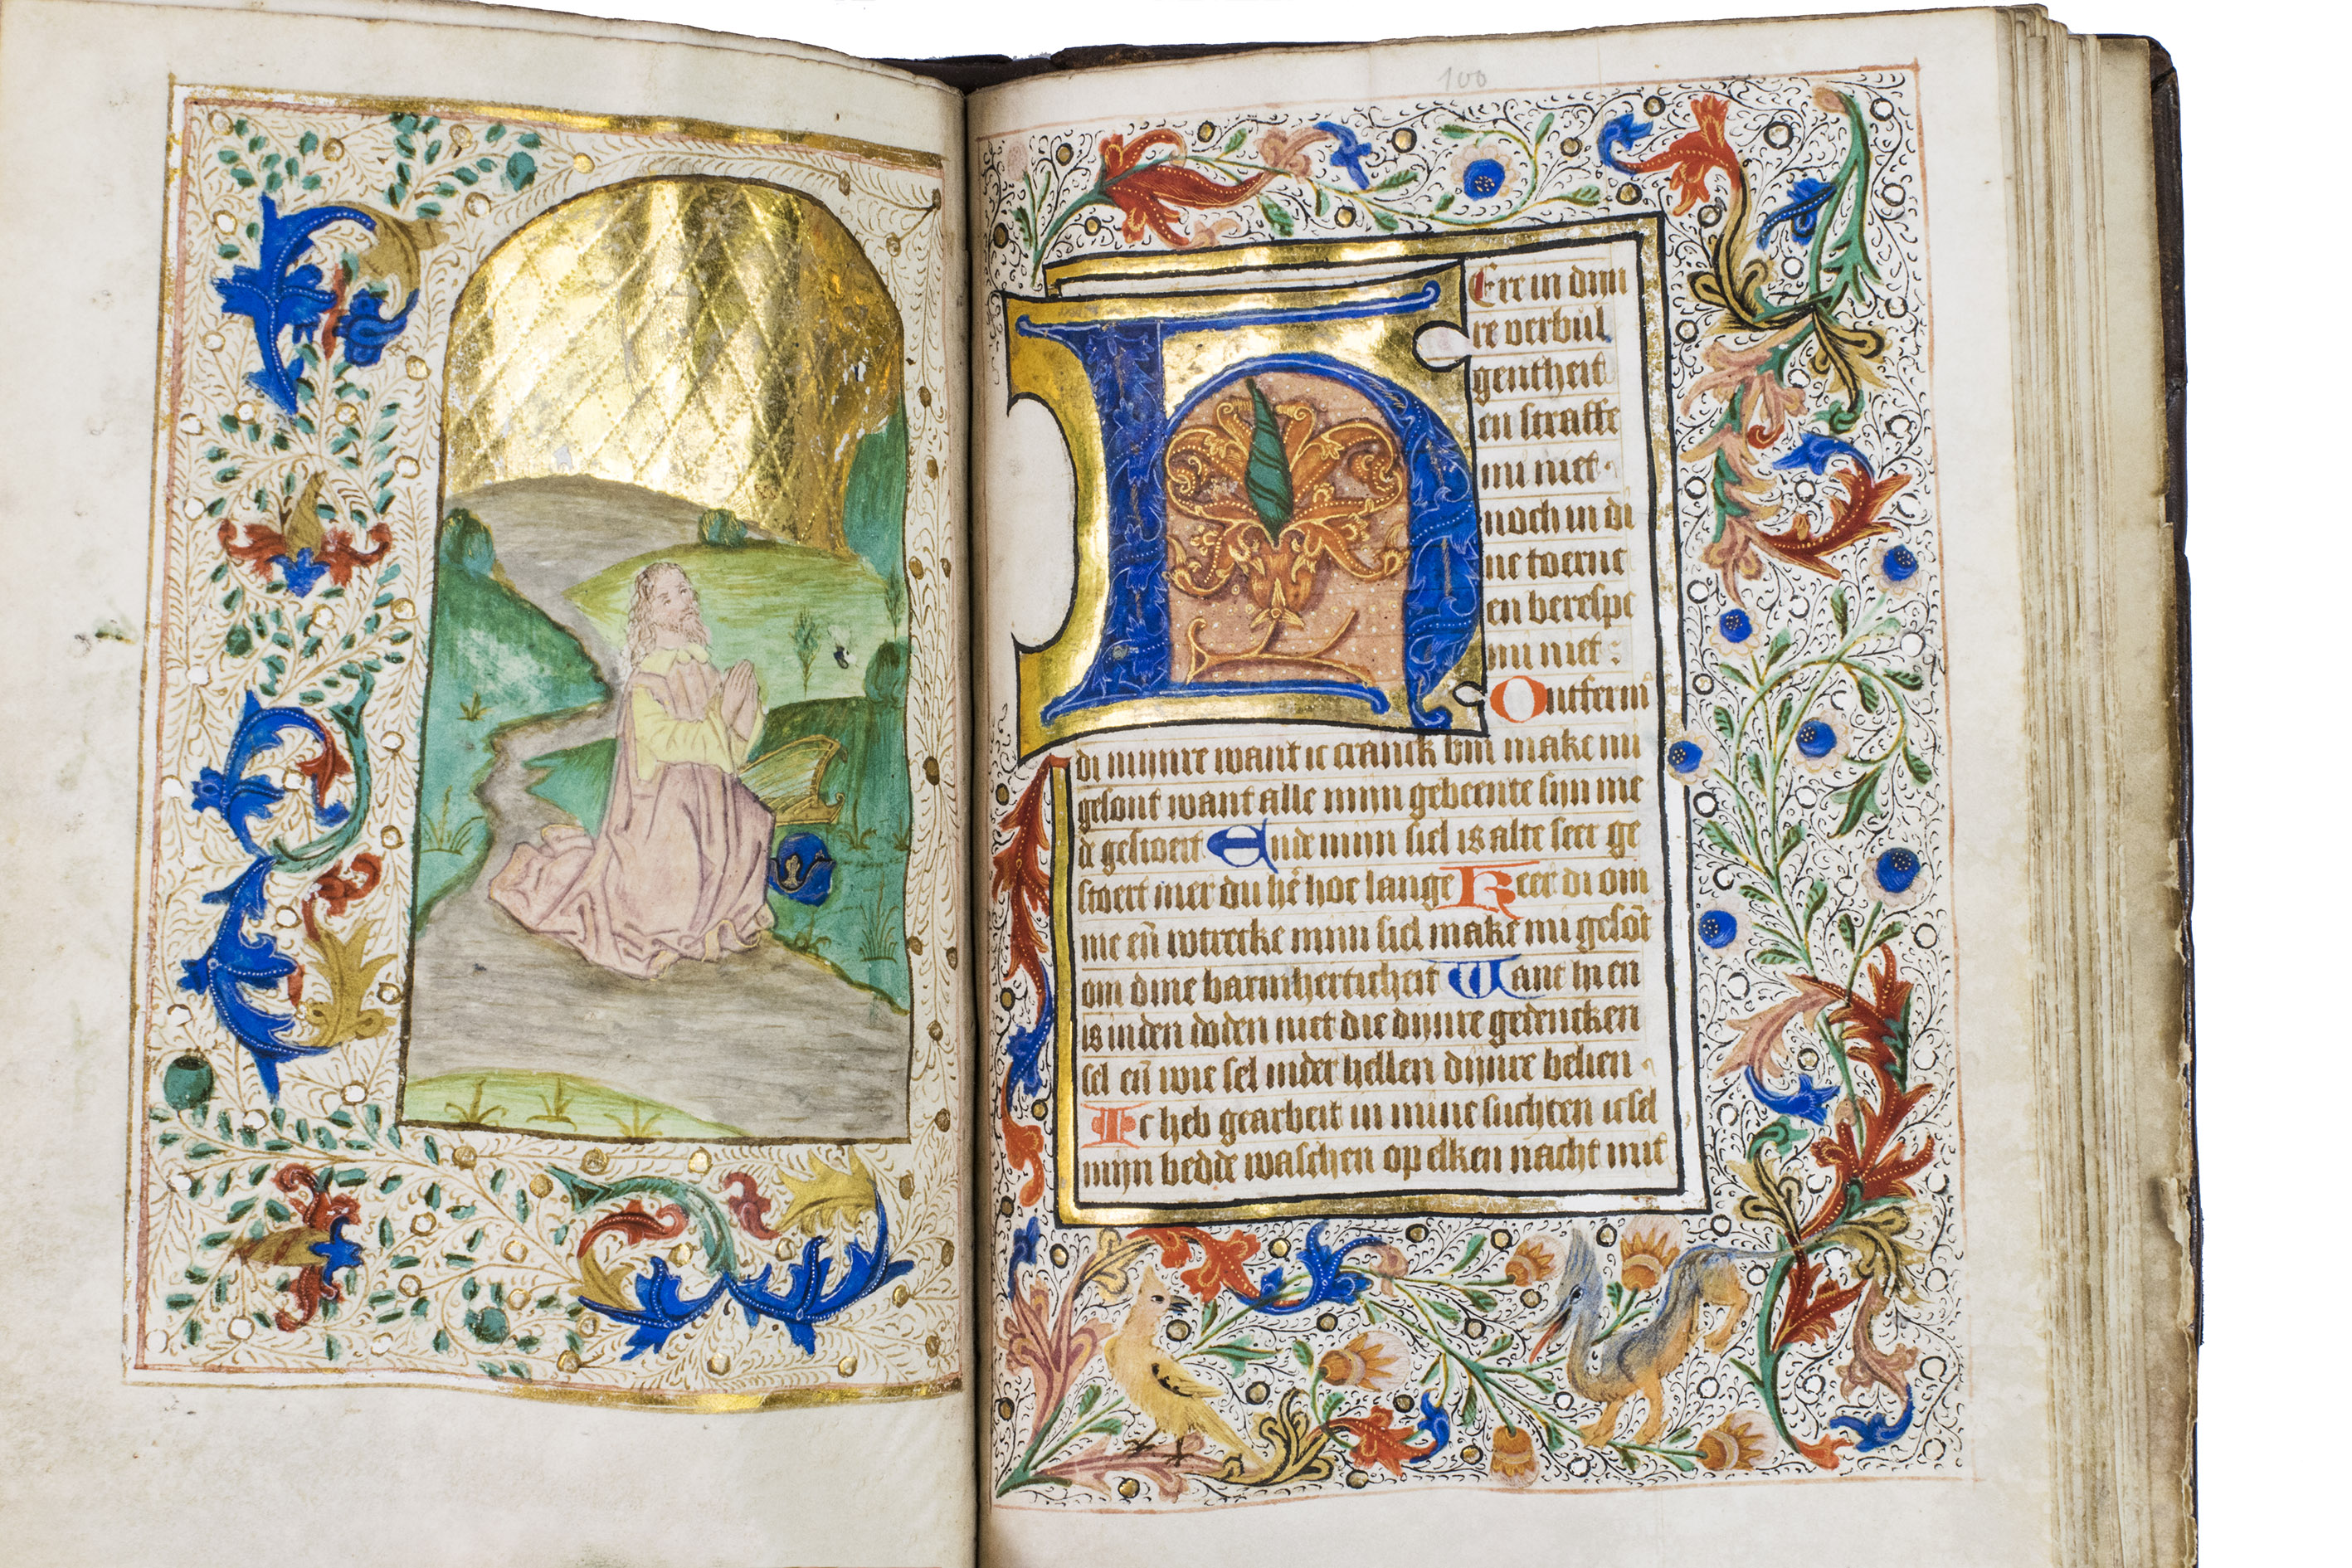 100
HEre in dinu
re verbul
gentheit
en straffe
mi niet.
noch in di
ne toerne
en berespe
mi niet:
Ontferm
di mijnre want ic cranck bin make mi
gesont want alle mijn gebeente sijn me
de gestoert Ende mijn siel is alte seer ge
stoert mer du hē hoe lange Keer di om
me en̄ wtrecke mijn siel make mi gesōt
om dine barmherticheit Want hi en
is in den doden niet die dijnre gedencken
sel en̄ wie sel inder hellen dijnre belien.
Ic heb gearbeit in mine suchten ic sel
mijn bedde waschen op elken nacht mit